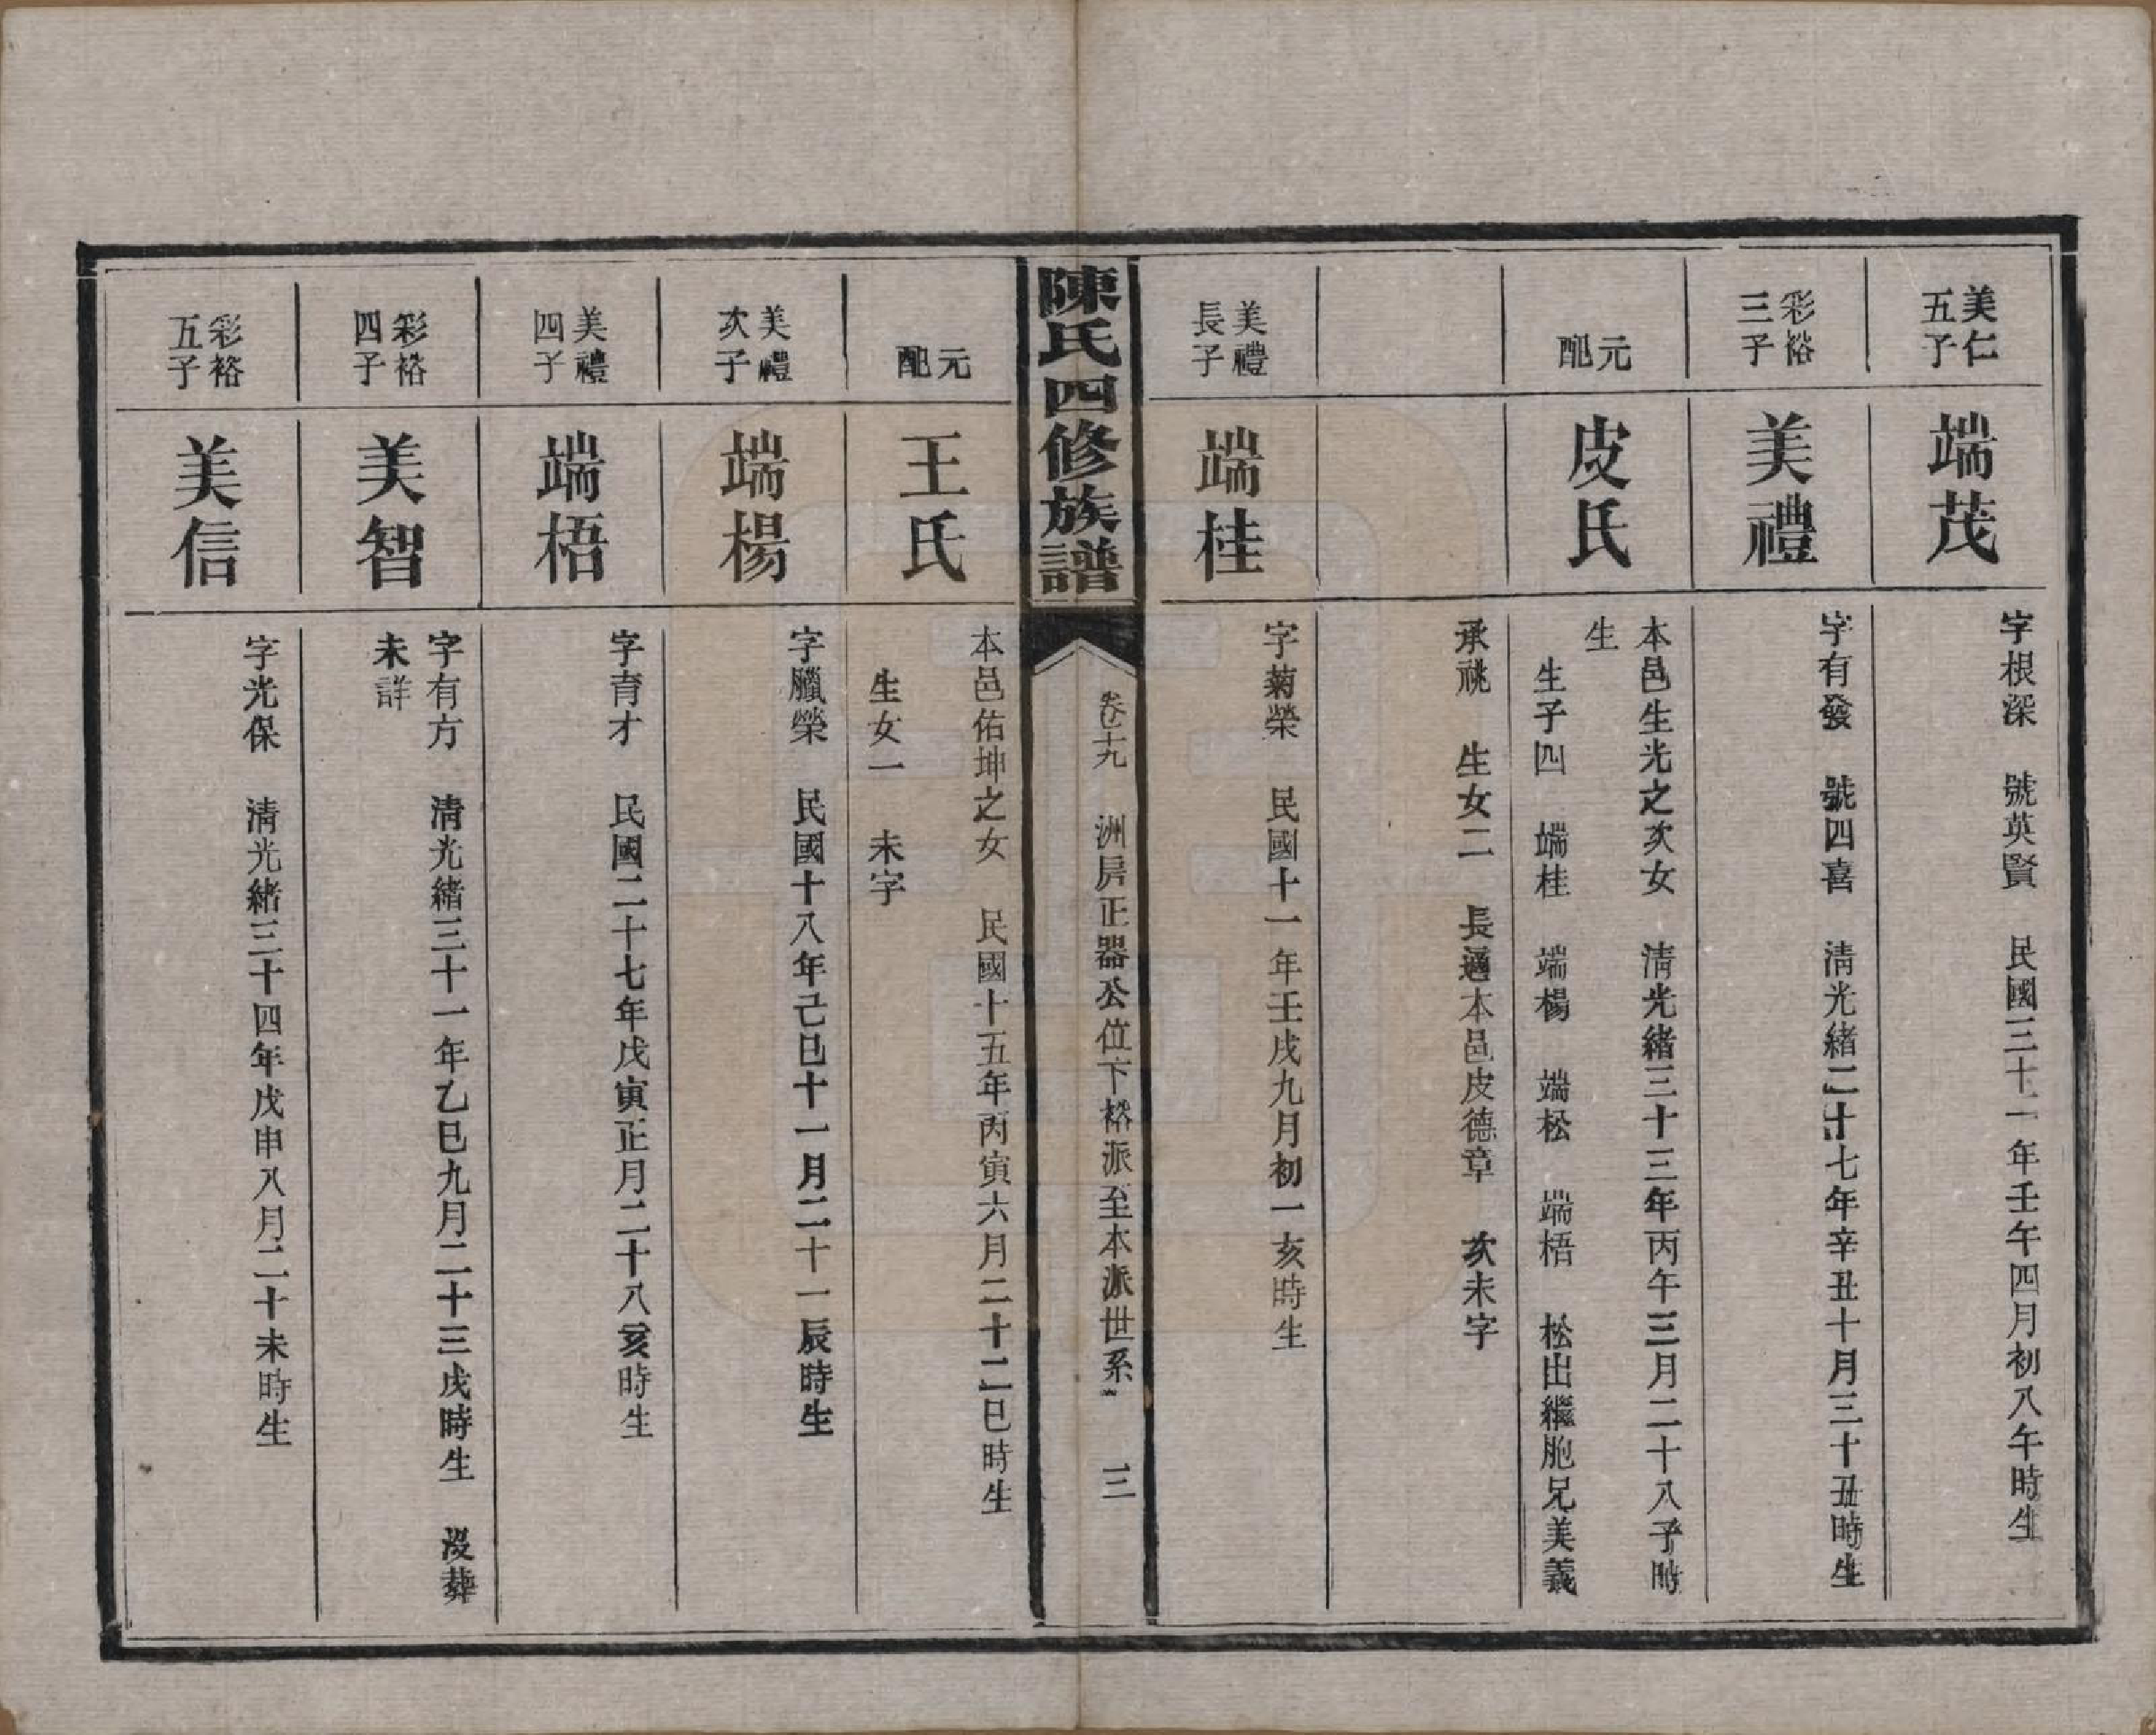 美仁
五子
端茂
字根深　號英賢　民國三十一年壬午四月初八午時生
彩裕
三子
美禮
字有發　號四喜　清光緒二十七年辛丑十月三十丑時生
元
配
皮氏
本邑生光之次女　清光緒三十三年丙午三月二十八子時
生
生子四　端桂　端楊　端松　端梧　松出繼胞兄美義
承祧　生女二　長適本邑皮德章　次未字
美禮
長子
端桂
字菊榮　民國十一年壬戌九月初一亥時生
陳氏四修族譜
卷十九　洲房正器公位下裕派至本派世系　三
元
配
王氏
本邑佑坤之女　民國十五年丙寅六月二十二巳時生
生女一　未字
美禮
次子
端楊
字臘榮　民國十八年己巳十一月二十一辰時生
美禮
四子
端梧
字育才　民國二十七年戊寅正月二十八亥時生
彩裕
四子
美智
字有方　清光緒三十一年乙巳九月二十三戌時生　沒葬
未詳
彩裕
五子
美信
字光保　清光緒三十四年戊申八月二十未時生